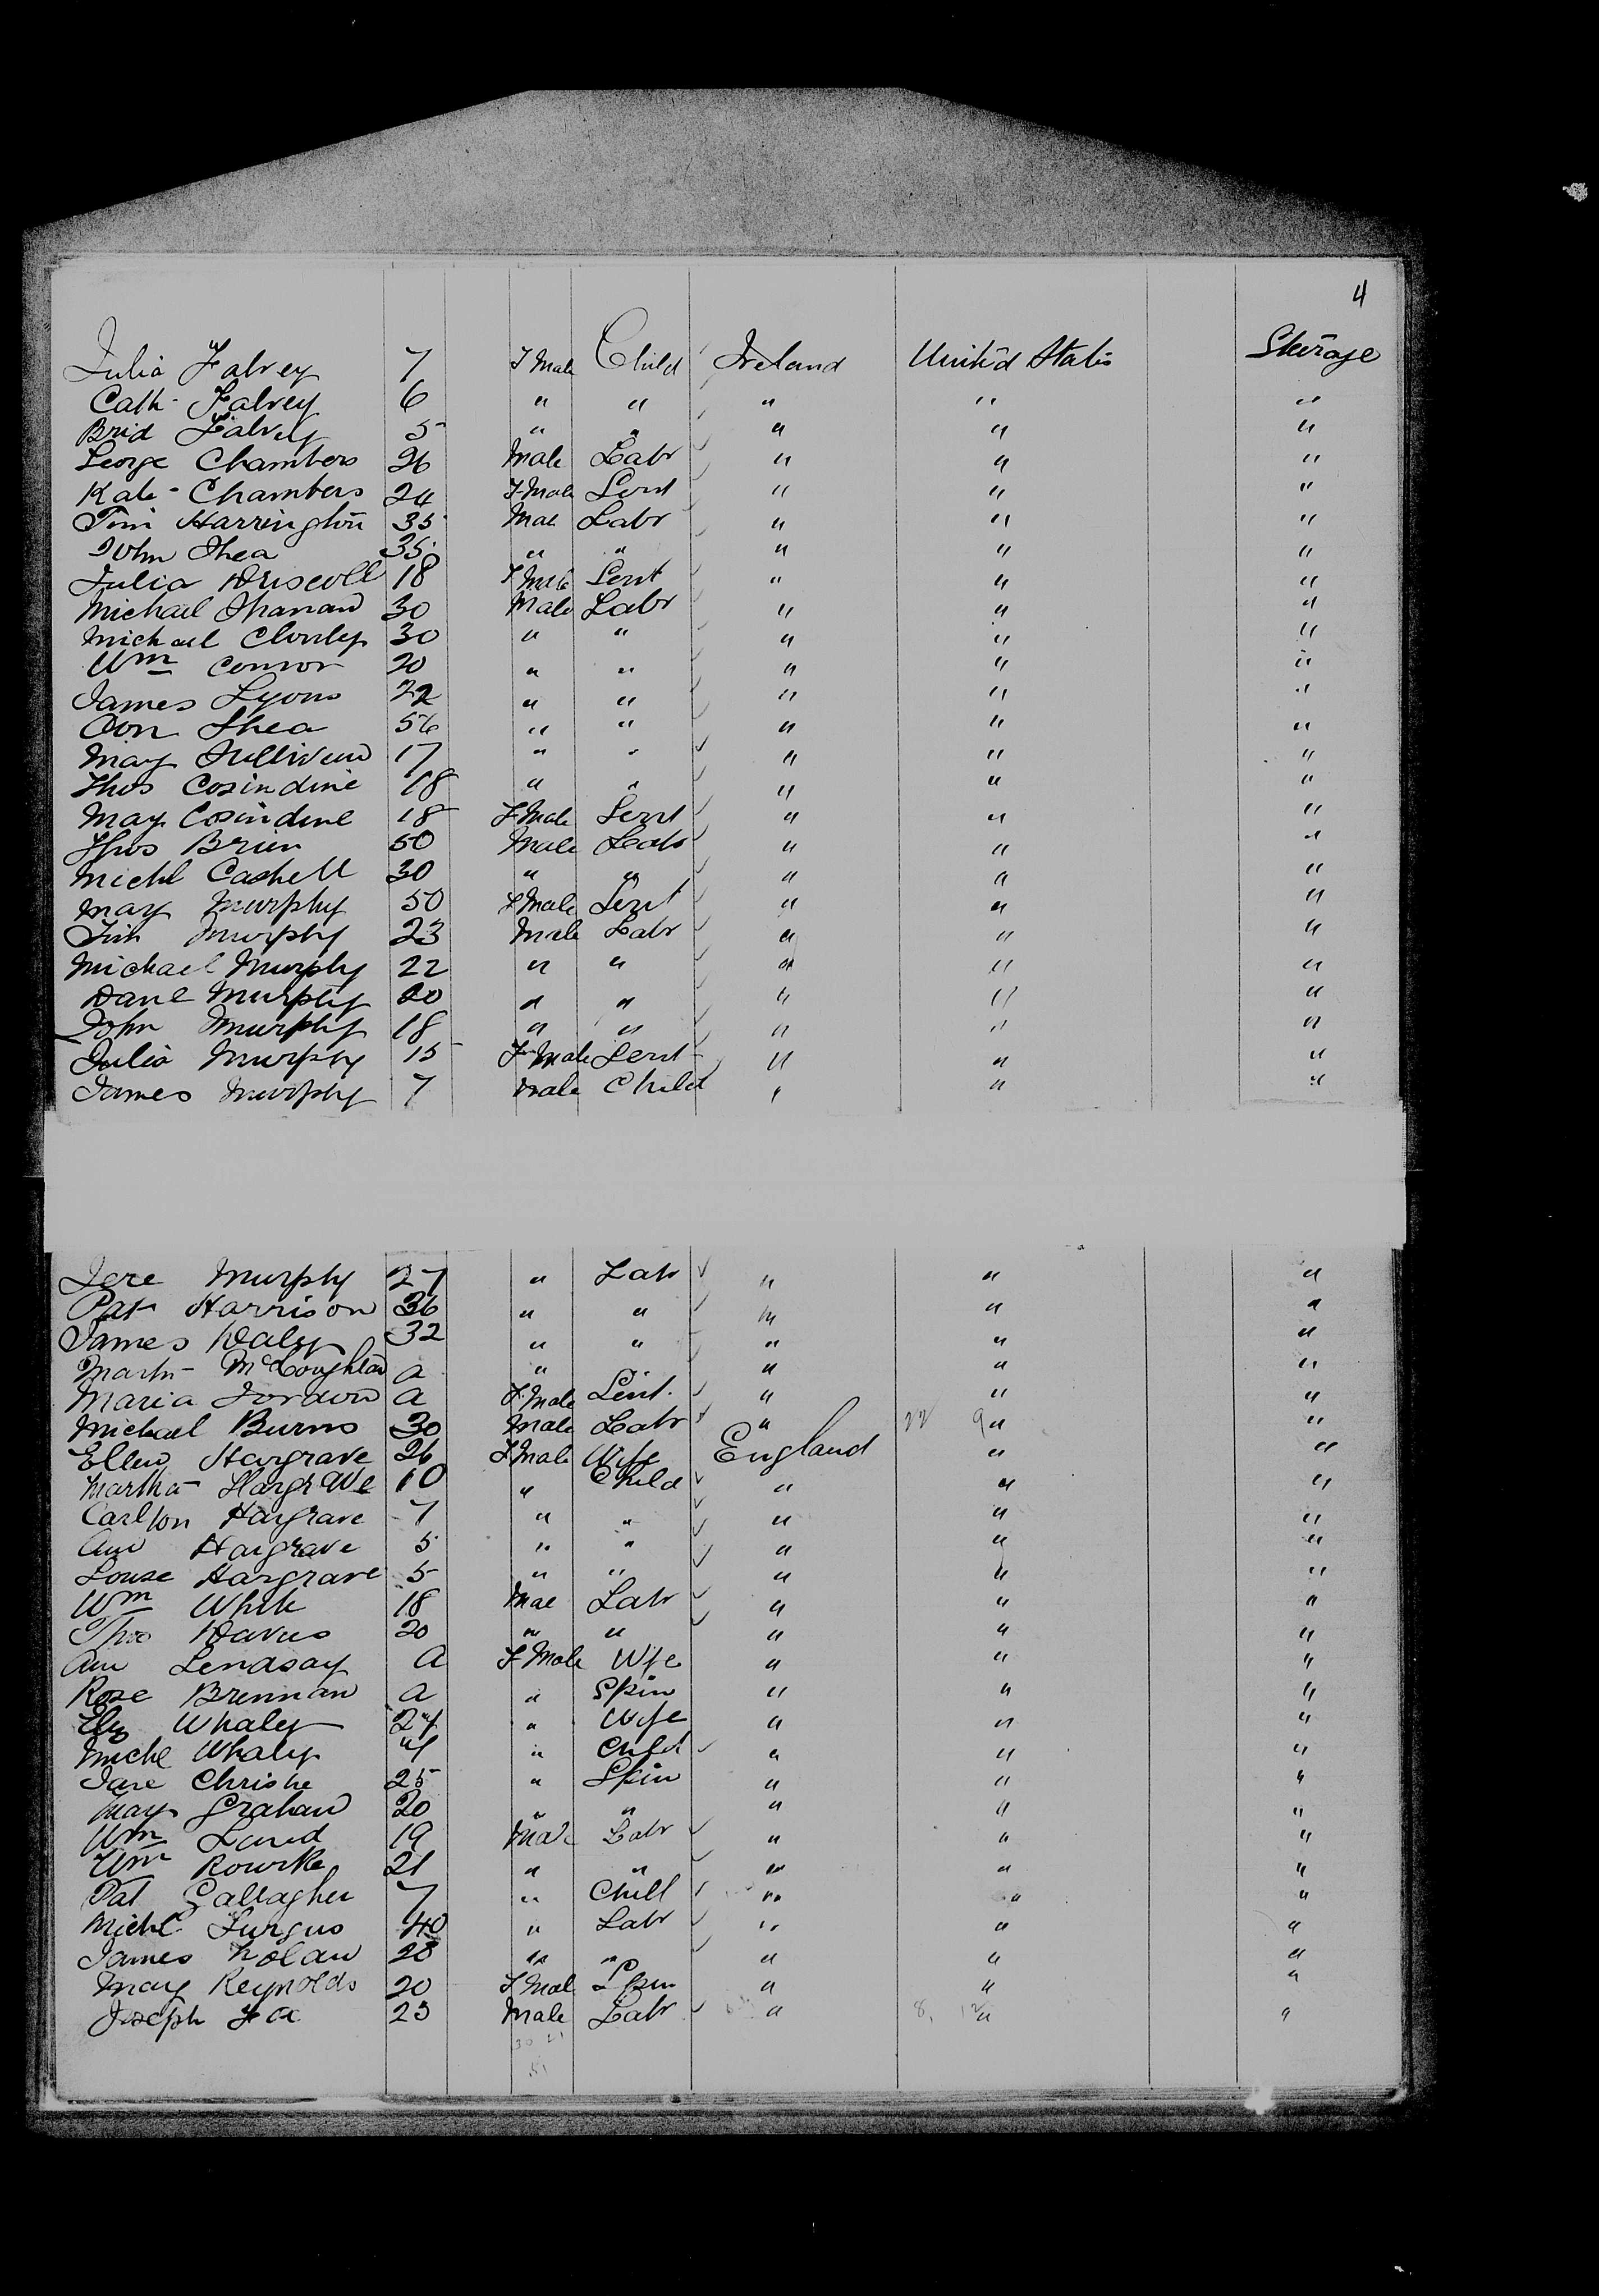 4
Julia Falvey 7 F Male Child Ireland United States Steerage
Cath Falvey 6 " " " " "
Brid Falvey 5 " " " " "
George Chambers 26 Male Labr " " "
Kate Chambers 24 F Male Sert " " "
Tim Harrington 35 Mae Labr " " "
John Shea 35 " " " " "
Julia Driscoll 18 F Male Sert " " "
Michael Shanan 30 Male Labr " " "
Michael 30 " " " " "
Wm Connor 20 " " " " "
James Lyons 22 " " " " "
Con Shea 56 " " " " "
May Sullivan 17 " " " " "
Thos Cosindine 18 " " " " "
May Cosindine 18 F Male Sert " " "
Thos Brien 50 Male Labr " " "
Michl Cashell 30 " " " " "
May Murphy 50 F Male Sert " " "
Tim Murphy 23 Male Labr " " "
Michael Murphy 22 " " " " "
Danl Murphy 20 " " " " "
John Murphy 18 " " " " "
Julia Murphy 15 F Male Sert " " "
James Murphy 7 Male Child " " "
Jere Murphy 27 " Labr " " "
Pat Harrison 36 " " " " "
James Daly 32 " " " " "
Martn McCoughlan a " " " "
Maria Jordon a F Male Sert " " "
Michael Burns 30 Male Labr " " "
Ellen Hargrave 26 F Male Wife England " "
Martha Hargrave 10 " Child " " "
Carlton Hargrave 7 " " " " "
Ann Hargrave 5 " " " " "
Louse Hargrave 5 " " " " "
Wm White 18 Mae Labr " " "
Thos Davus 20 " " " " "
Ann Lendsay a F Male Wife " " "
Rose Brennan a " Spin " " "
Elz Whaley 24 " Wife " " "
Michl Whaley 4 " Child " " "
Jane Christie 25 " Spin " " "
May Graham 20 " " " " "
Wm Laird 19 Male Labr " " "
Wm Rourke 21 " " " " "
Pat Gallagher 7 " Chill " " "
Michl Furgus 40 " Labr " " "
James Nolan 28 " " " " "
May Reynolds 20 F Mal Spin " " "
Joseph Fox 23 Male Labr " " "